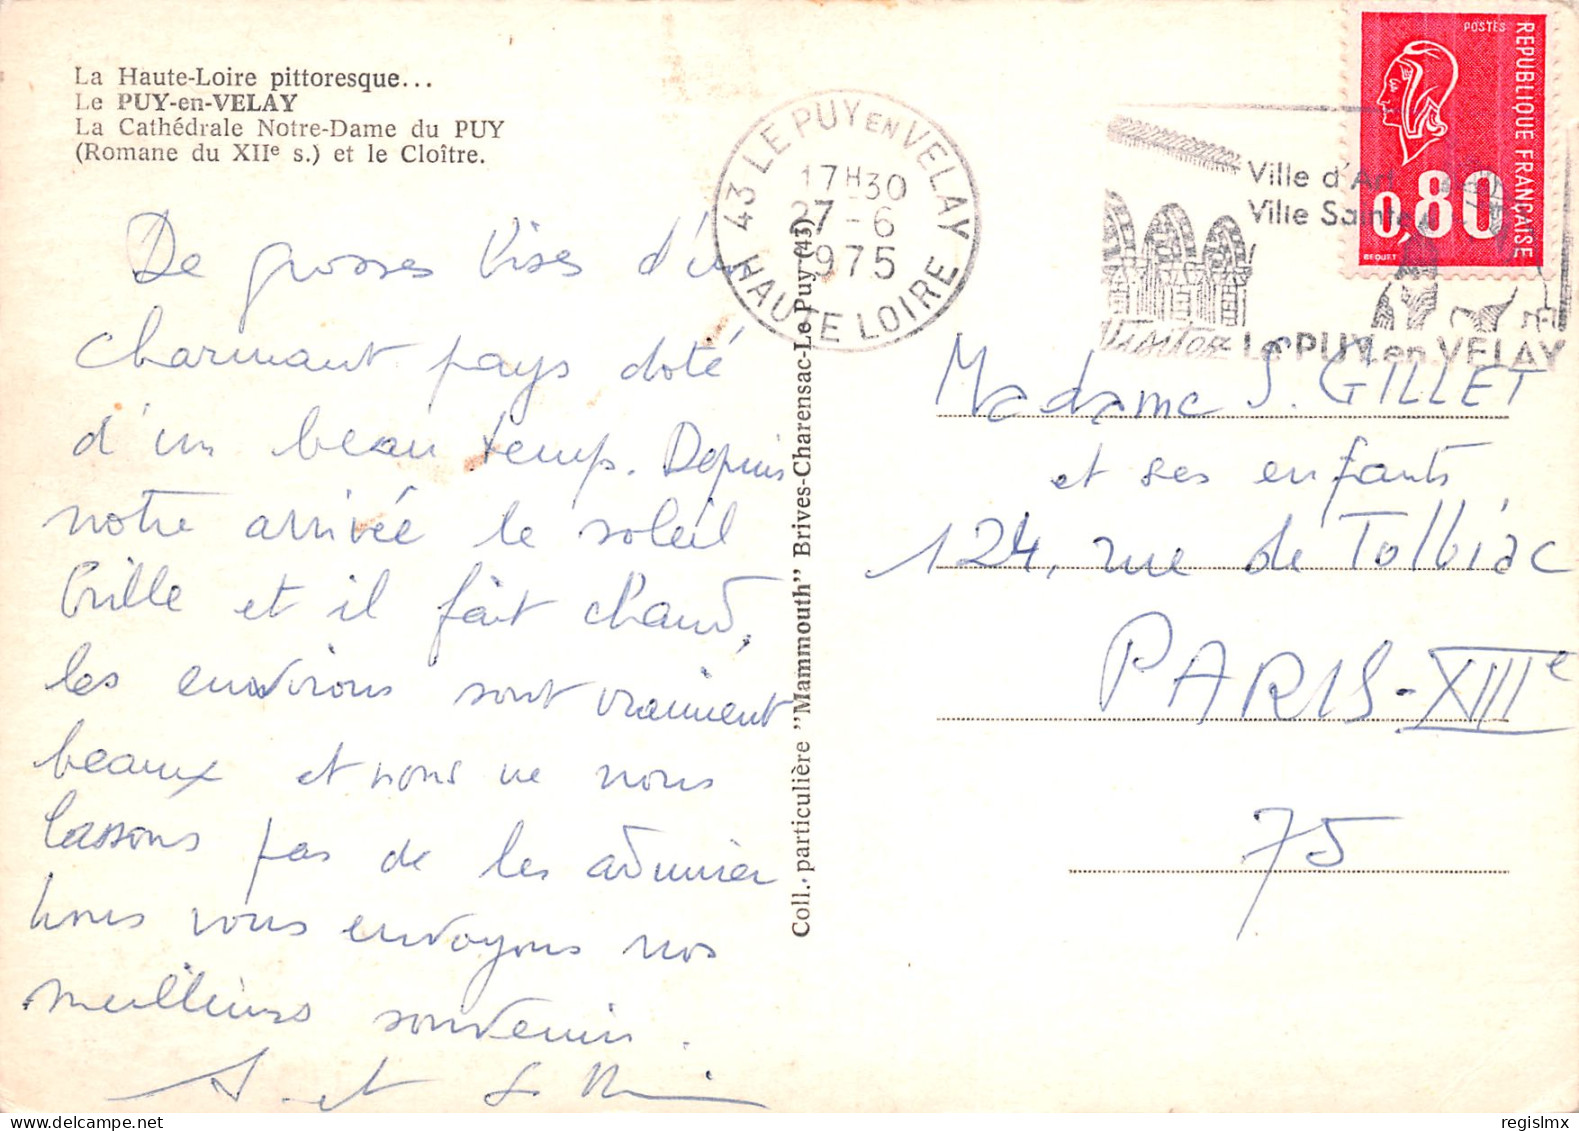 La Haute-Loire pittoresque...
Le PUY-en-VELAY
La Cathédrale Notre-Dame du PUY
(Romane du XIIe s.) et le Cloître.
De grosses bises d'un
charmant pays doté
d'un beau temps. Depuis
notre arrivée le soleil
brille et il fait chaud,
les environs sont vraiment
beaux et nous ne nous
lassons pas de les admirer
Nous vous envoyons nos
meilleurs souvenirs.
et
Coll. particulière "Mammouth" Brives-Charensac-Le Puy (43)
43 LE PUY EN VELAY
17H30
27-6
1975
HAUTE LOIRE
Ville d'Art
Ville Sainte
Visitez Le PUY en VELAY
POSTES
REPUBLIQUE FRANÇAISE
0,80
BEQUET
Madame S. GILLET
et ses enfants
124, rue de Tolbiac
PARIS-XIIIe
75
regislmx